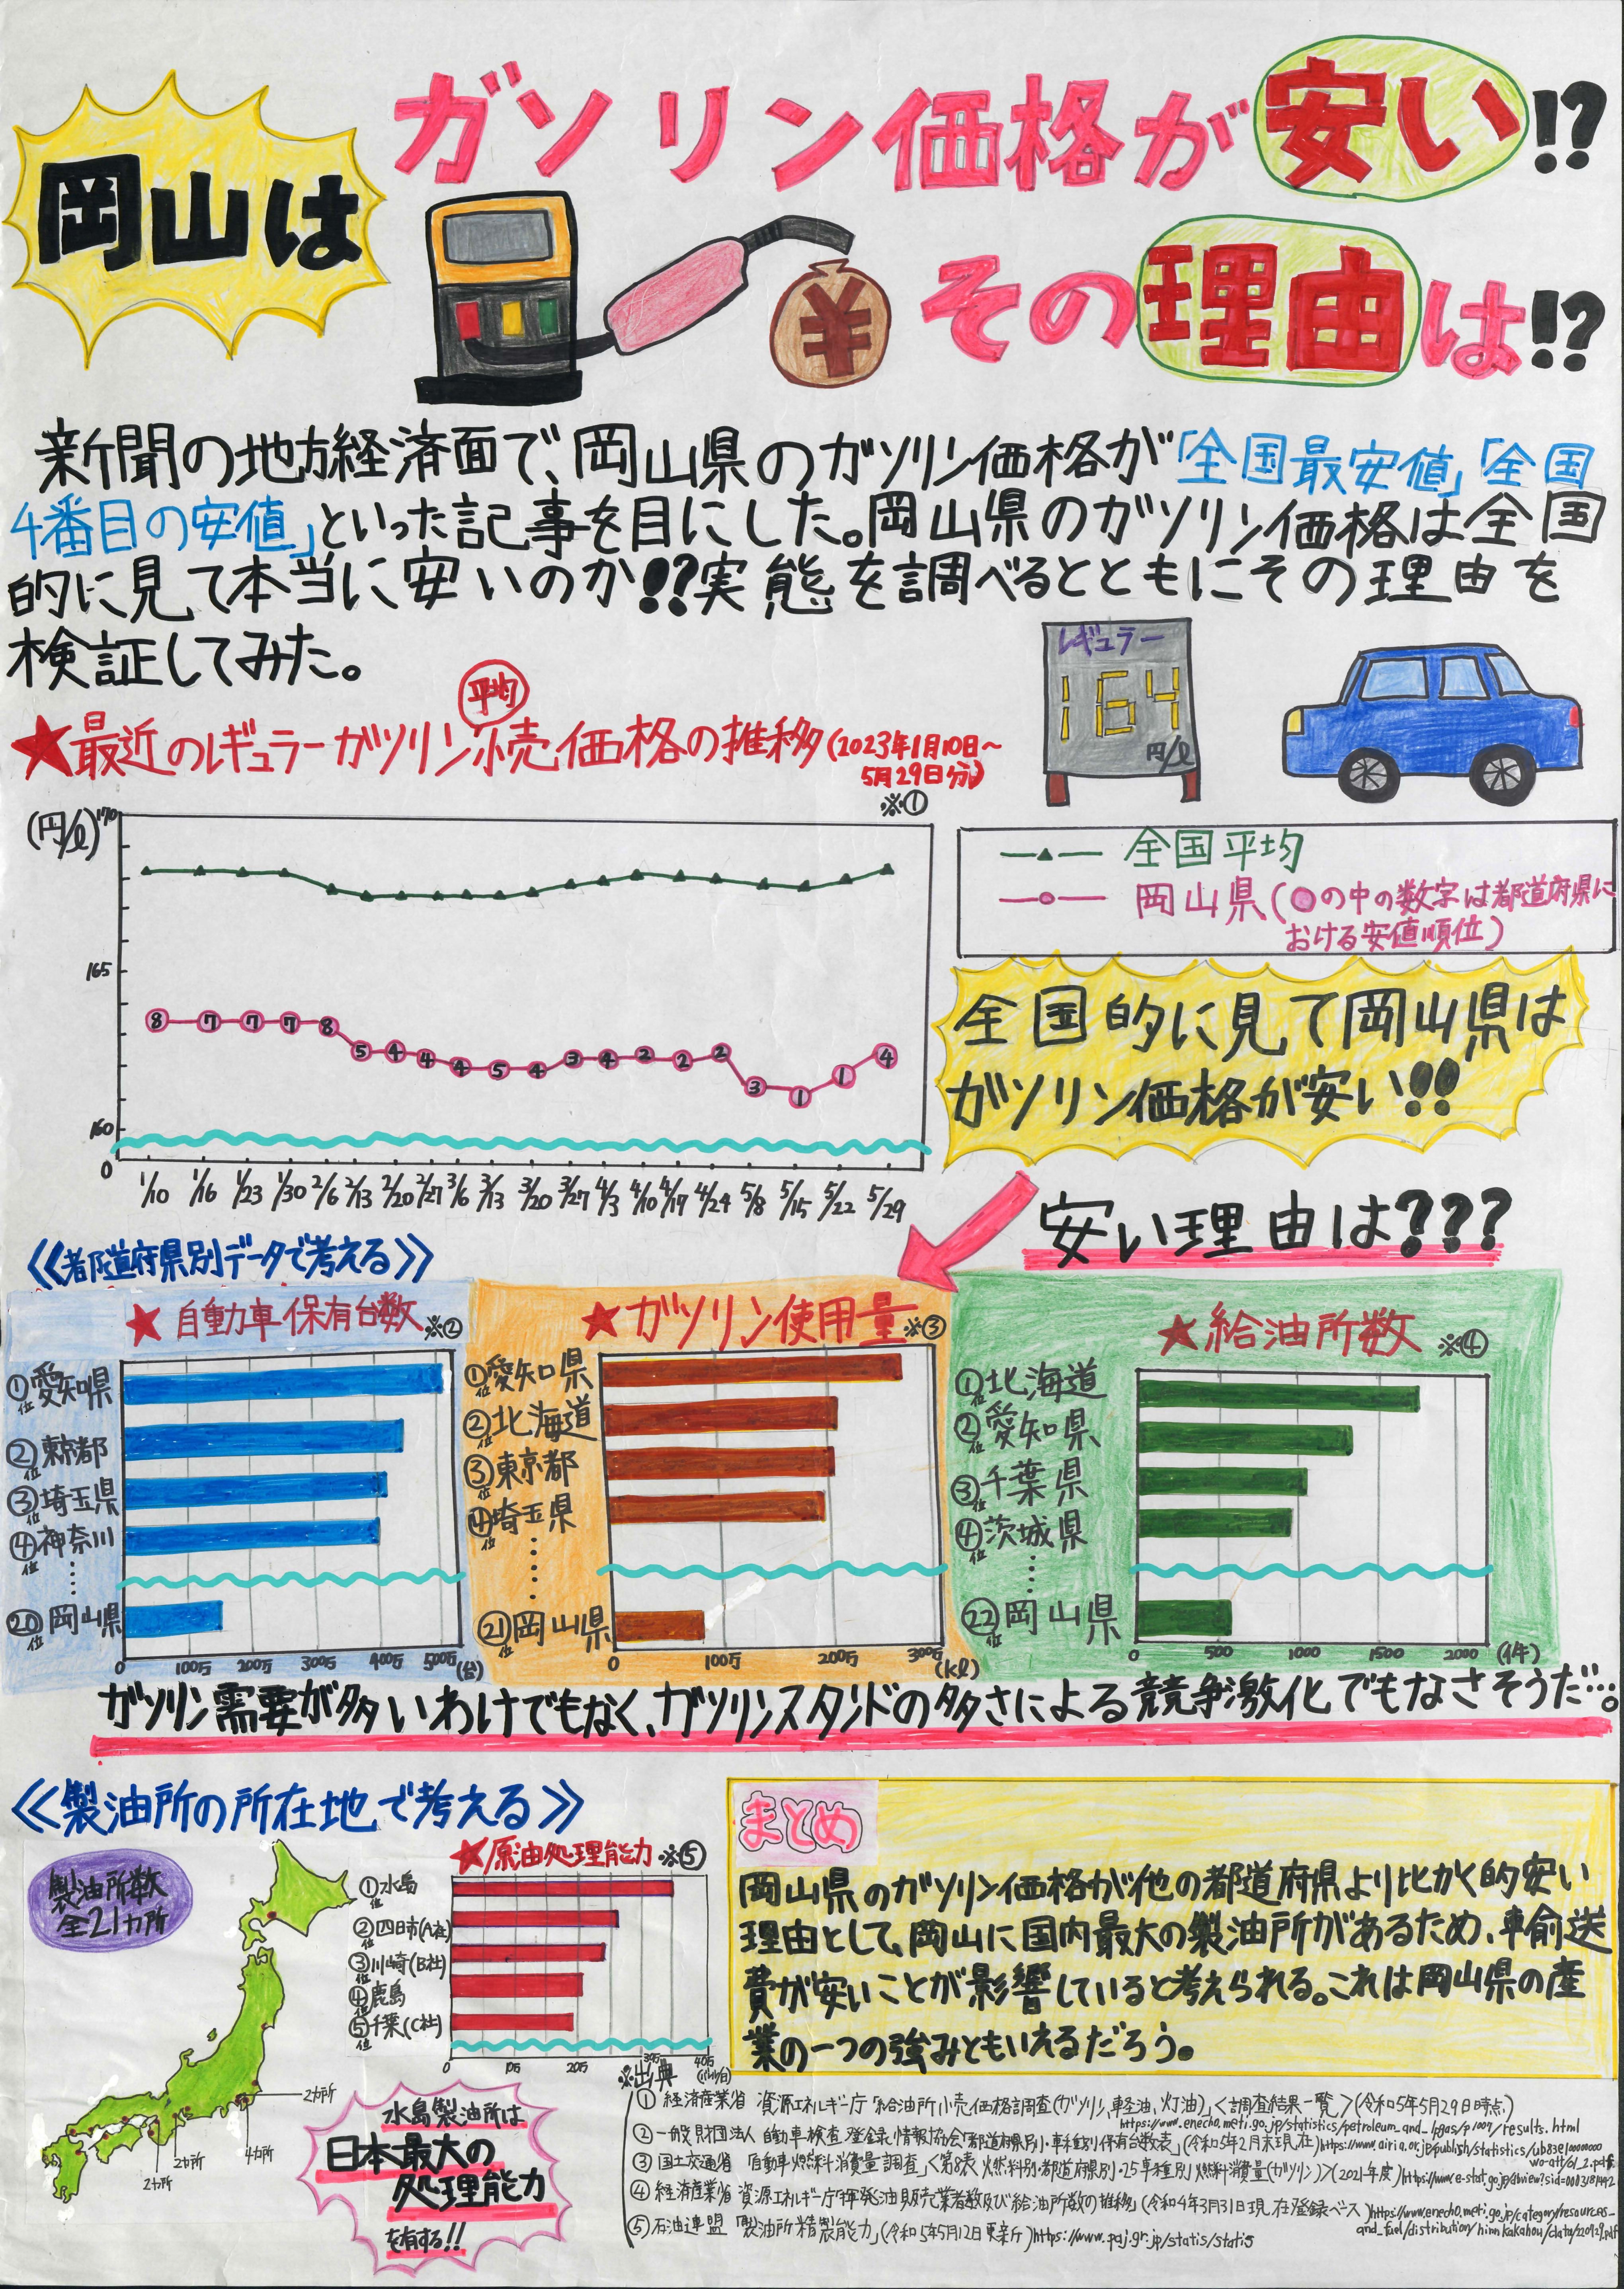 岡山は
ガソリン価格が安い!?
その理由は!?
¥
新聞の地方経済面で、岡山県のガソリン価格が「全国最安値」「全国
4番目の安値」といった記事を目にした。岡山県のガソリン価格は全国
的に見て本当に安いのか!?実態を調べるとともにその理由を
検証してみた。
レギュラー
164
円/ℓ
平均
★最近のレギュラーガソリン小売価格の推移(2023年1月10日〜
5月29日分)
※①
(円/ℓ)
170
165
160
0
8 7 7 7 8 5 4 4 4 5 4 3 4 2 2 2 3 1 1 4
1/10 1/16 1/23 1/30 2/6 2/13 2/20 2/27 3/6 3/13 3/20 3/27 4/3 4/10 4/17 4/24 5/8 5/15 5/22 5/29
全国平均
岡山県(○の中の数字は都道府県に
おける安値順位)
全国的に見て岡山県は
ガソリン価格が安い!!
安い理由は???
《都道府県別データで考える》
★自動車保有台数※②
①位愛知県
②位東京都
③位埼玉県
④位神奈川
⑳位岡山県
0 100万 200万 300万 400万 500万(台)
★ガソリン使用量※③
①位愛知県
②位北海道
③位東京都
④位埼玉県
㉑位岡山県
0 100万 200万 300万(kℓ)
★給油所数 ※④
①位北海道
②位愛知県
③位千葉県
④位茨城県
㉒位岡山県
0 500 1000 1500 2000 (件)
ガソリン需要が多いわけでもなく、ガソリンスタンドの多さによる競争激化でもなさそうだ…。
《製油所の所在地で考える》
製油所数
全21カ所
2カ所
4カ所
2カ所
2カ所
★原油処理能力※⑤
①位水島
②位四日市(A社)
③位川崎(B社)
④位鹿島
⑤位千葉(C社)
0 10万 20万 30万 40万
(バレル/日)
水島製油所は
日本最大の
処理能力
を有する!!
まとめ
岡山県のガソリン価格が他の都道府県より比かく的安い
理由として、岡山に国内最大の製油所があるため、輸送
費が安いことが影響していると考えられる。これは岡山県の産
業の一つの強みともいえるだろう。
※出典
① 経済産業省 資源エネルギー庁「給油所小売価格調査(ガソリン、軽油、灯油)」<調査結果一覧>(令和5年5月29日時点)
https://www.enecho.meti.go.jp/statistics/petroleum_and_lpgas/pl007/results.html
② 一般財団法人 自動車検査登録情報協会「都道府県別・車種別保有台数表」(令和5年2月末現在)https://www.airia.or.jp/publish/statistics/
③ 国土交通省 「自動車燃料消費量調査」<第8表 燃料別・都道府県別・25車種別 燃料消費量(ガソリン)>(2021年度)
④ 経済産業省 資源エネルギー庁「揮発油販売業者数及び給油所数の推移」(令和4年3月31日現在登録ベース)https://www.enecho.meti.go.jp/category/resources_
and_fuel/distribution/hinnkakahou/data/220929.pdf
⑤ 石油連盟 「製油所精製能力」(令和5年5月12日更新)https://www.paj.gr.jp/statis/statis